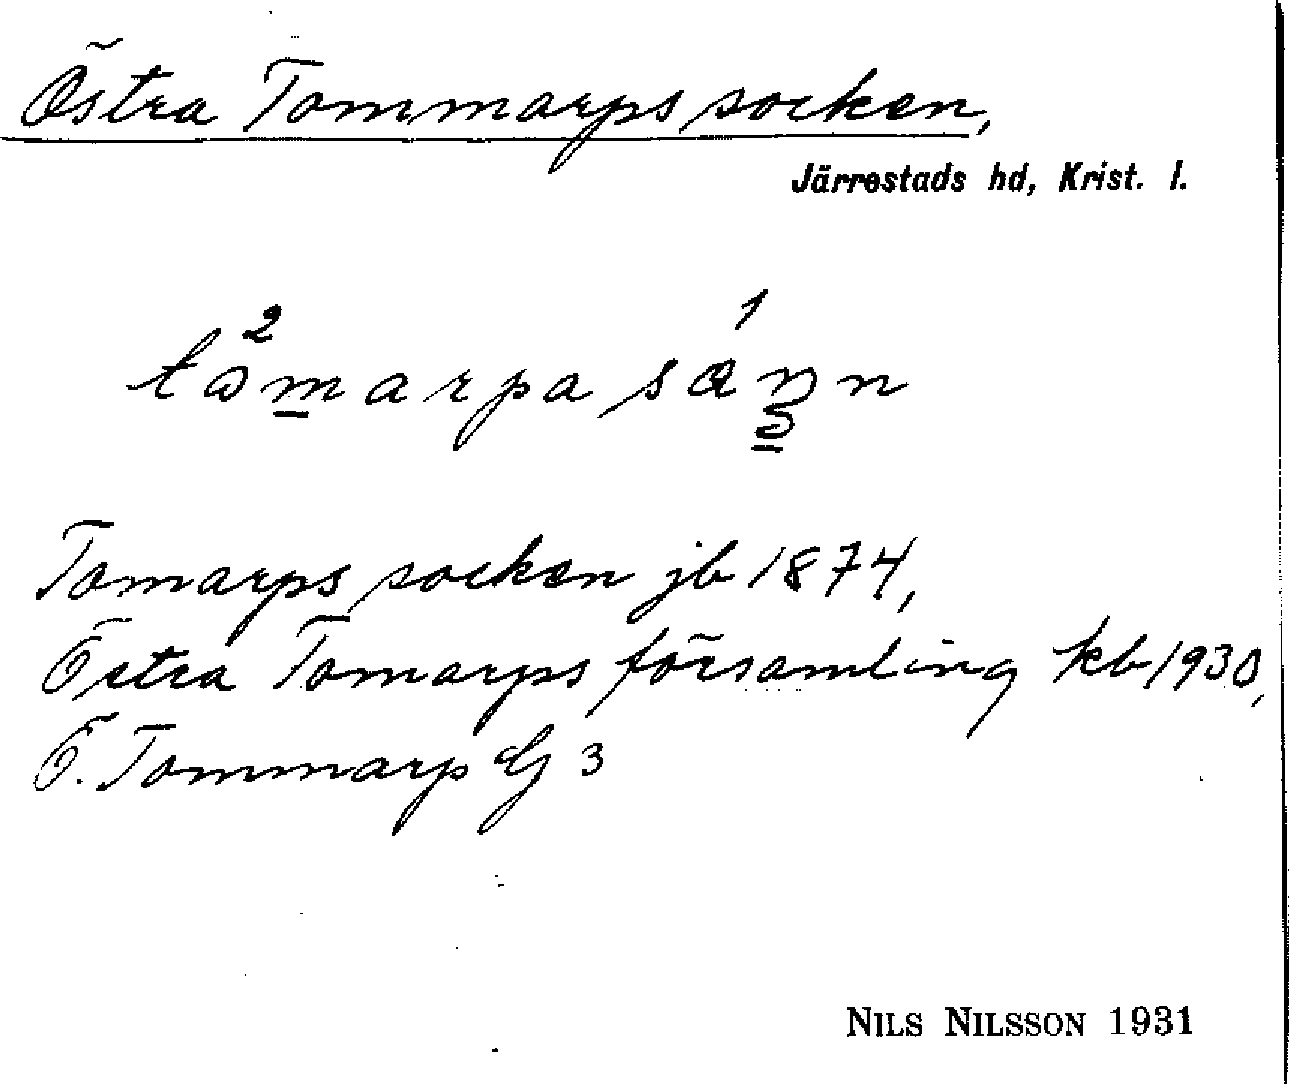 Östra Tommarps socken,
Järrestads hd, Krist. l.
Tomarps socken jb 1874,
Östra Tomarps församling kb 1930,
Ö. Tommarp G 3
NILS NILSSON 1931